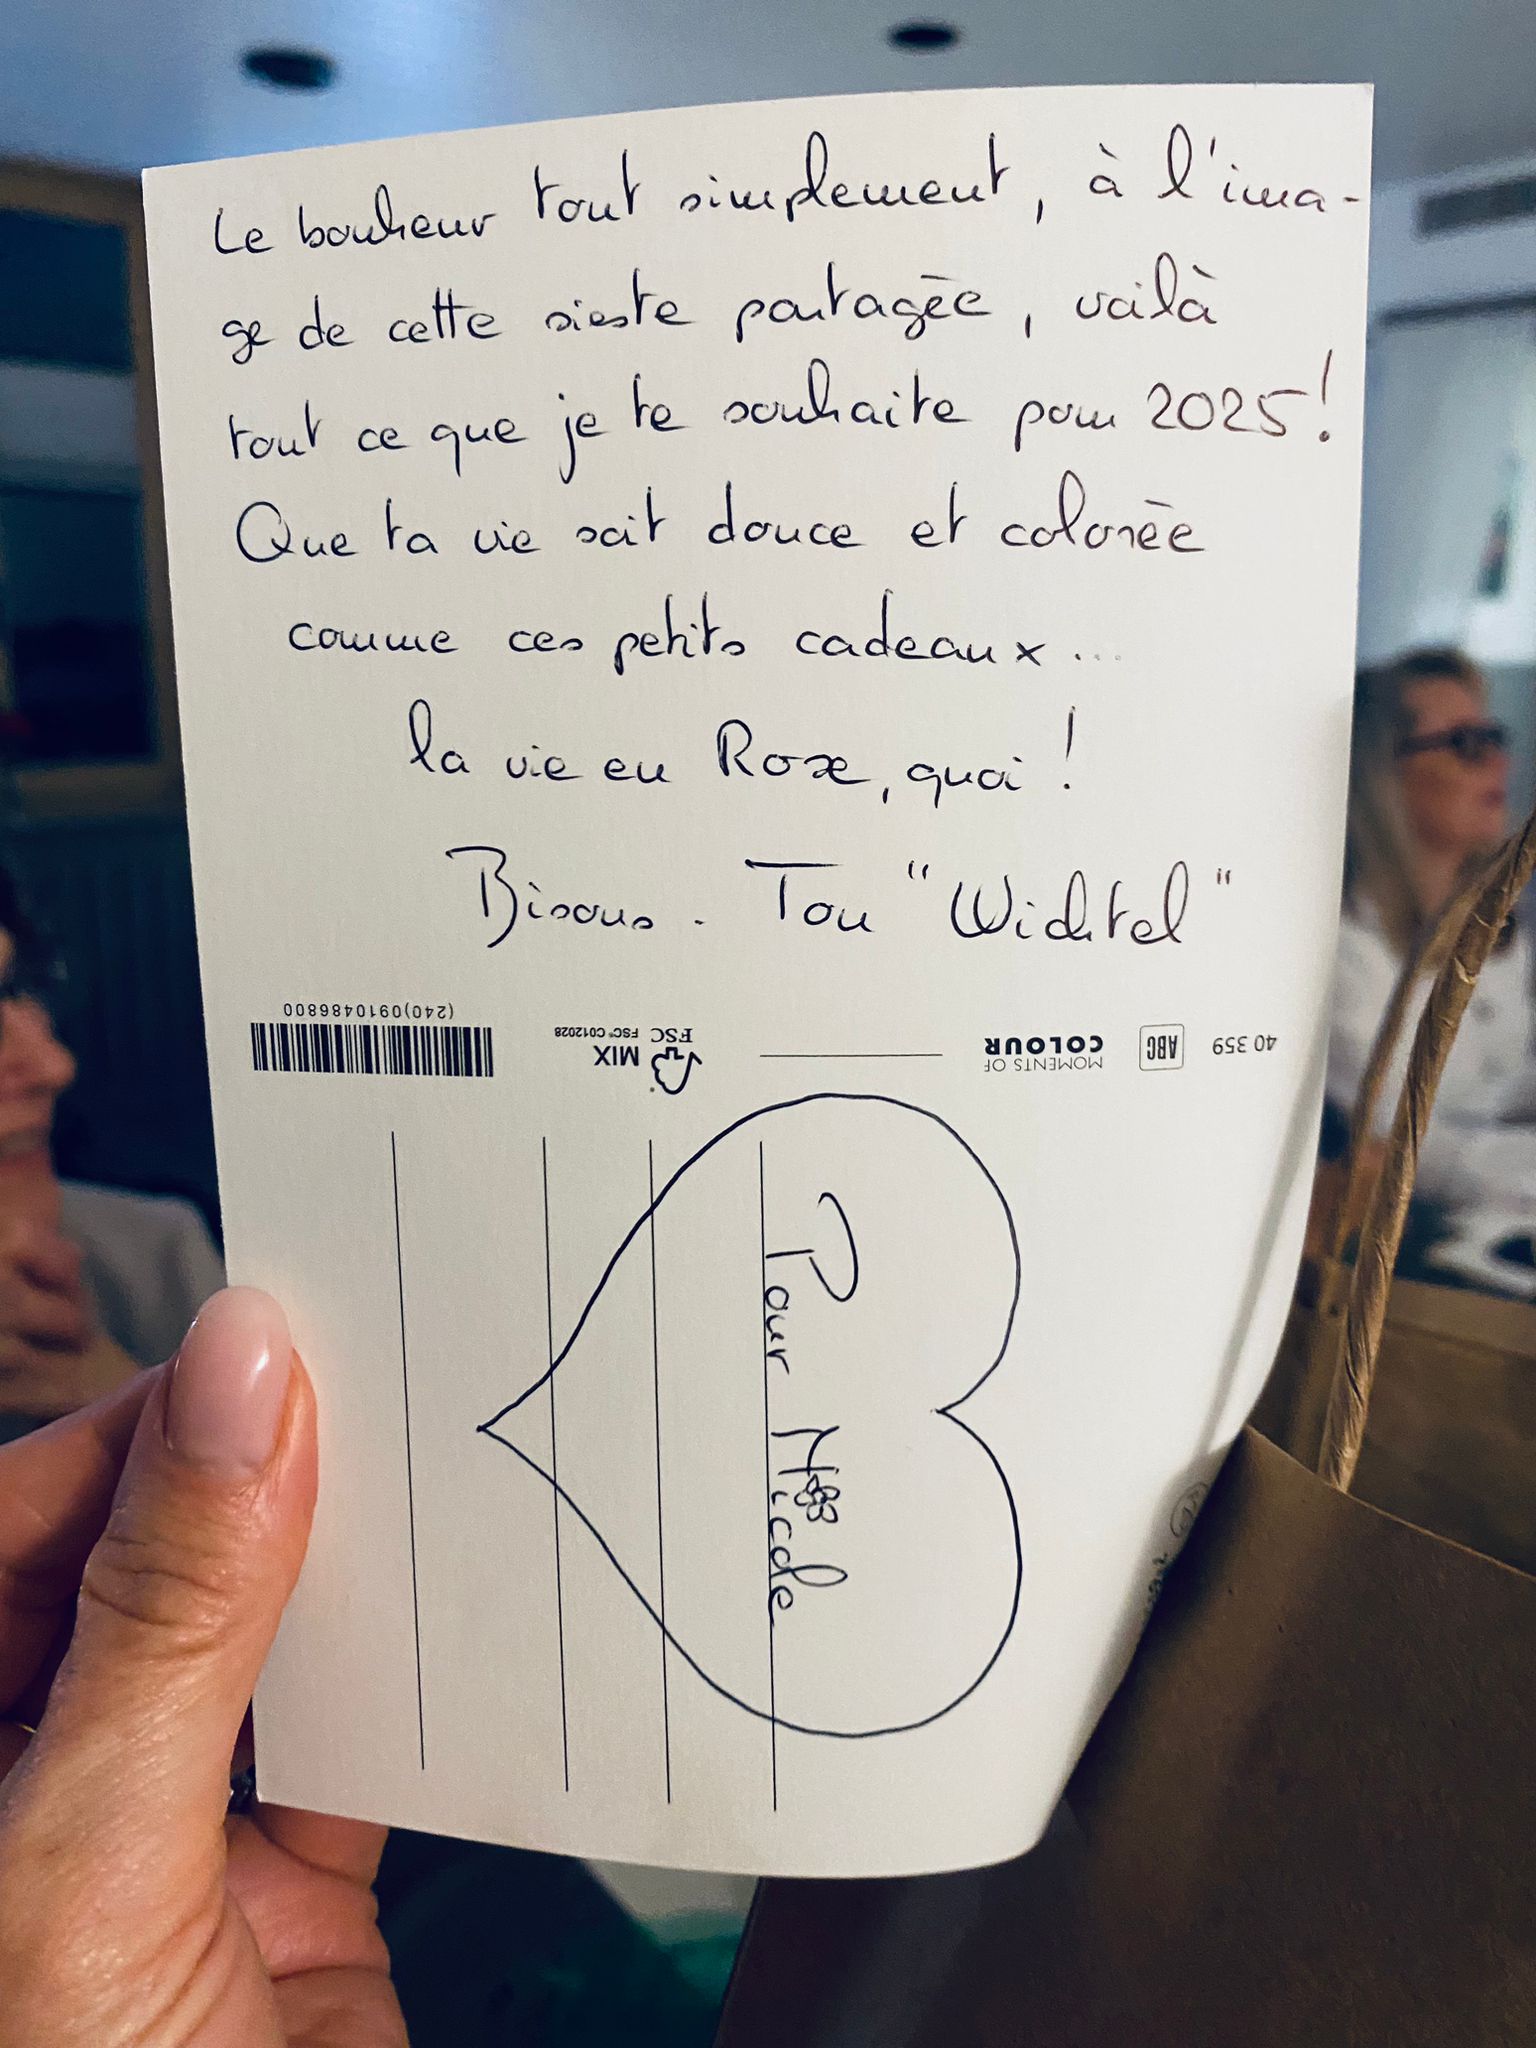 Le bonheur tout simplement, à l'ima-
ge de cette sieste partagée, voilà
tout ce que je te souhaite pour 2025!
Que ta vie soit douce et colorée
comme ces petits cadeaux...
la vie en Rose, quoi !
Bisous. Ton "Wichtel"
(240)0910486800
MIX
FSC
FSC® C012028
MOMENTS OF
COLOUR
ABC
40 359
Pour Nicole